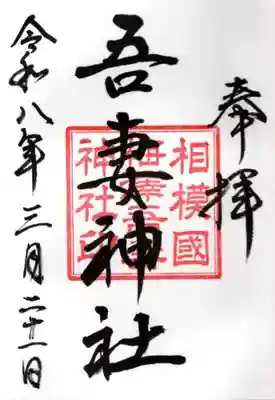 奉拝
吾妻神社
相模國
神社印
令和八年三月二十一日